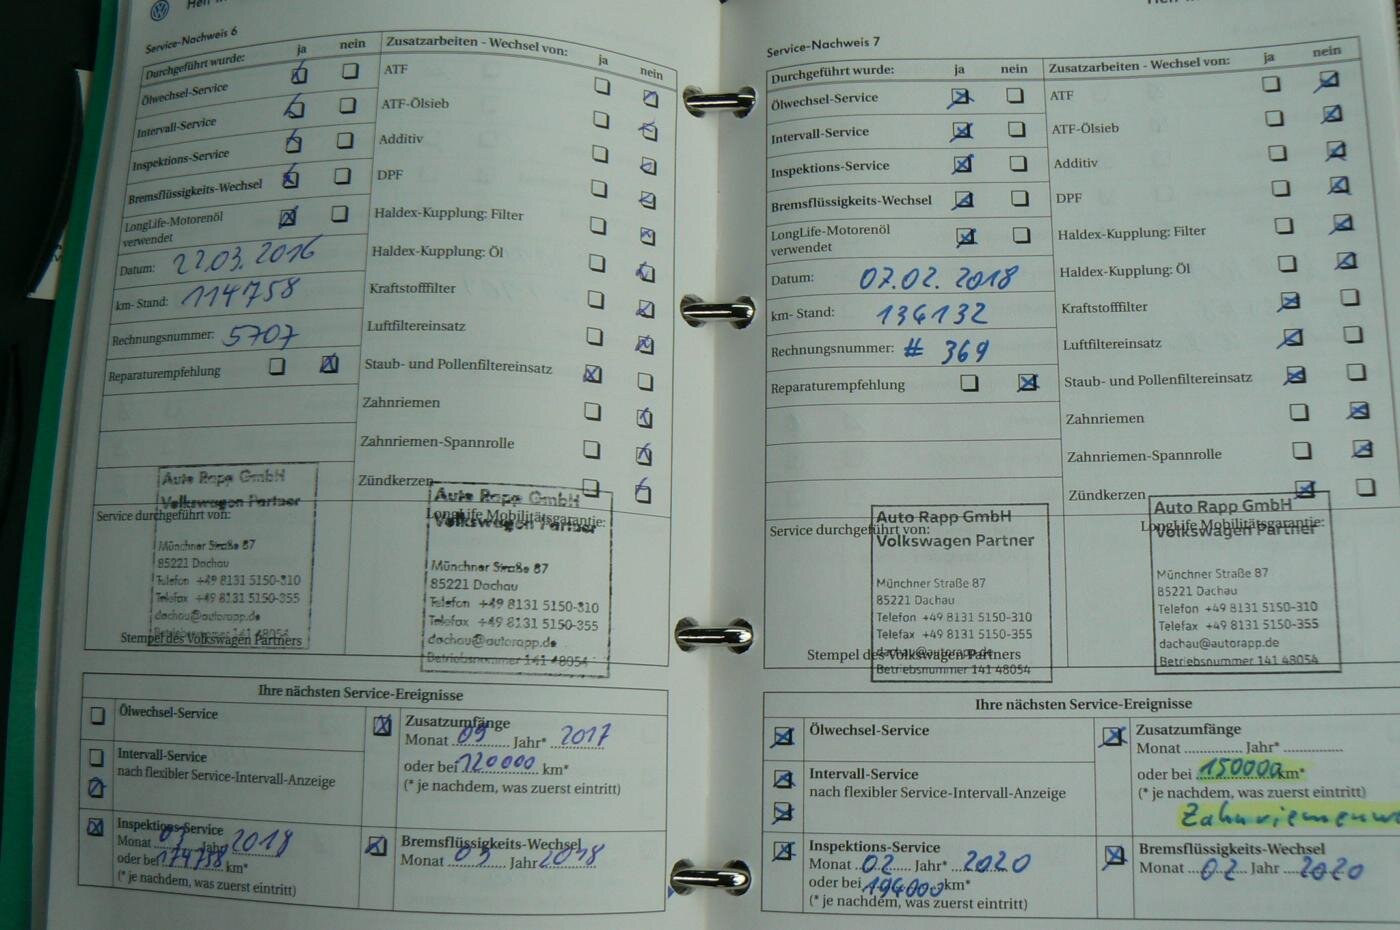 Service-Nachweis 6
Durchgeführt wurde: ja nein
Ölwechsel-Service
Intervall-Service
Inspektions-Service
Bremsflüssigkeits-Wechsel
LongLife-Motorenöl
verwendet
Datum: 22.03.2016
km-Stand: 114758
Rechnungsnummer: 5707
Reparaturempfehlung
Zusatzarbeiten - Wechsel von: ja nein
ATF
ATF-Ölsieb
Additiv
DPF
Haldex-Kupplung: Filter
Haldex-Kupplung: Öl
Kraftstofffilter
Luftfiltereinsatz
Staub- und Pollenfiltereinsatz
Zahnriemen
Zahnriemen-Spannrolle
Zündkerzen
Service durchgeführt von:
Auto Rapp GmbH
Volkswagen Partner
Münchner Straße 87
85221 Dachau
Telefon +49 8131 5150-310
Telefax +49 8131 5150-355
dachau@autorapp.de
Betriebsnummer 141 48054
Stempel des Volkswagen Partners
LongLife Mobilitätsgarantie:
Auto Rapp GmbH
Volkswagen Partner
Münchner Straße 87
85221 Dachau
Telefon +49 8131 5150-310
Telefax +49 8131 5150-355
dachau@autorapp.de
Betriebsnummer 141 48054
Ihre nächsten Service-Ereignisse
Ölwechsel-Service
Intervall-Service
nach flexibler Service-Intervall-Anzeige
Inspektions-Service
Monat 03 Jahr 2018
oder bei 174758 km*
(* je nachdem, was zuerst eintritt)
Zusatzumfänge
Monat 09 Jahr* 2017
oder bei 120000 km*
(* je nachdem, was zuerst eintritt)
Bremsflüssigkeits-Wechsel
Monat 03 Jahr 2018
Service-Nachweis 7
Durchgeführt wurde: ja nein
Ölwechsel-Service
Intervall-Service
Inspektions-Service
Bremsflüssigkeits-Wechsel
LongLife-Motorenöl
verwendet
Datum: 07.02.2018
km-Stand: 134132
Rechnungsnummer: # 369
Reparaturempfehlung
Zusatzarbeiten - Wechsel von: ja nein
ATF
ATF-Ölsieb
Additiv
DPF
Haldex-Kupplung: Filter
Haldex-Kupplung: Öl
Kraftstofffilter
Luftfiltereinsatz
Staub- und Pollenfiltereinsatz
Zahnriemen
Zahnriemen-Spannrolle
Zündkerzen
Service durchgeführt von:
Auto Rapp GmbH
Volkswagen Partner
Münchner Straße 87
85221 Dachau
Telefon +49 8131 5150-310
Telefax +49 8131 5150-355
dachau@autorapp.de
Betriebsnummer 141 48054
Stempel des Volkswagen Partners
LongLife Mobilitätsgarantie:
Auto Rapp GmbH
Volkswagen Partner
Münchner Straße 87
85221 Dachau
Telefon +49 8131 5150-310
Telefax +49 8131 5150-355
dachau@autorapp.de
Betriebsnummer 141 48054
Ihre nächsten Service-Ereignisse
Ölwechsel-Service
Intervall-Service
nach flexibler Service-Intervall-Anzeige
Inspektions-Service
Monat 02 Jahr* 2020
oder bei 194000 km*
(* je nachdem, was zuerst eintritt)
Zusatzumfänge
Monat Jahr*
oder bei 150000 km*
(* je nachdem, was zuerst eintritt)
Zahnriemenwe
Bremsflüssigkeits-Wechsel
Monat 02 Jahr 2020